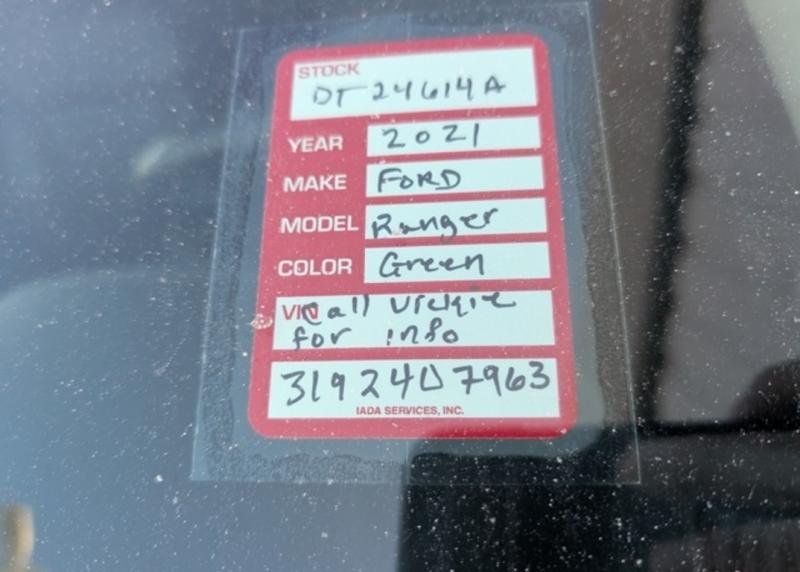 STOCK
DT 24614A
YEAR 2021
MAKE FORD
MODEL Ranger
COLOR Green
VIN Call Vickie
for info
3192407963
IADA SERVICES, INC.